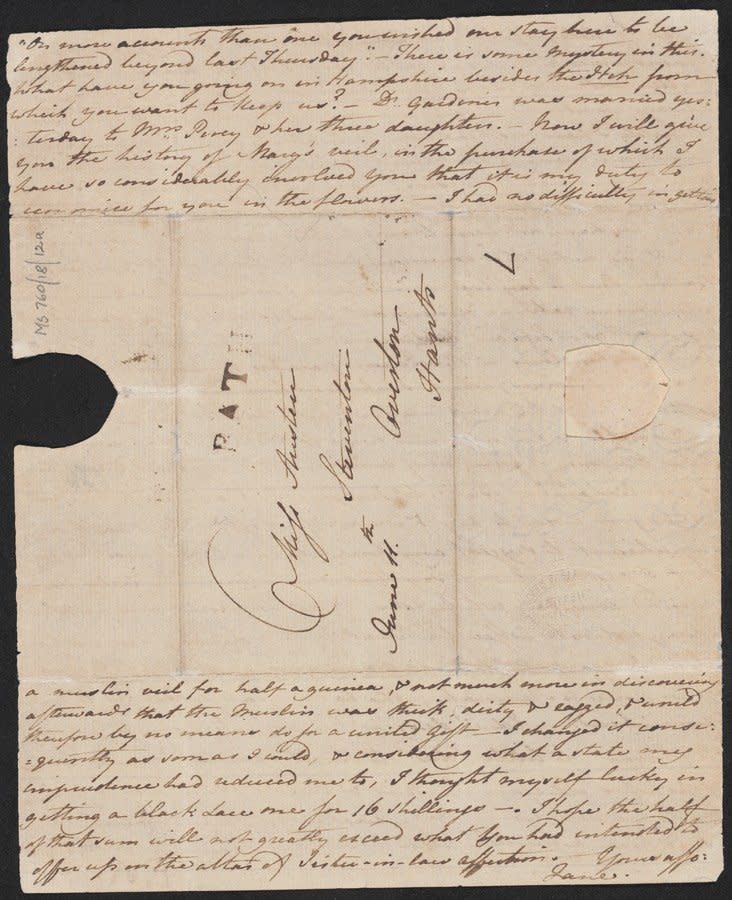 "On more accounts than one you wished our stay here to be
lengthened beyond last Thursday." — There is some Mystery in this.
What have you going on in Hampshire besides the Itch from
which you want to keep us? — Dr. Gardiner was married yes:
:terday to Mrs Percy & her three daughters. — Now I will give
you the history of Mary's veil, in the purchase of which I
have so considerably involved you that it is my duty to
economise for you in the flowers. — I had no difficulty in getting
MS 760/18/12a
BATH
7
Miss Austen
Steventon
Overton
Hants
June 11.th
a muslin veil for half a guinea, & not much more in discovering
afterwards that the Muslin was thick, dirty & ragged, & would
therefore by no means do for a united Gift — I changed it conse:
:quently as soon as I could, & considering what a state my
imprudence had reduced me to, I thought myself lucky in
getting a black Lace one for 16 shillings —. I hope the half
of that sum will not greatly exceed what You had intended to
offer up on the altar of Sister-in-law affection. Yours affec:
Jane.